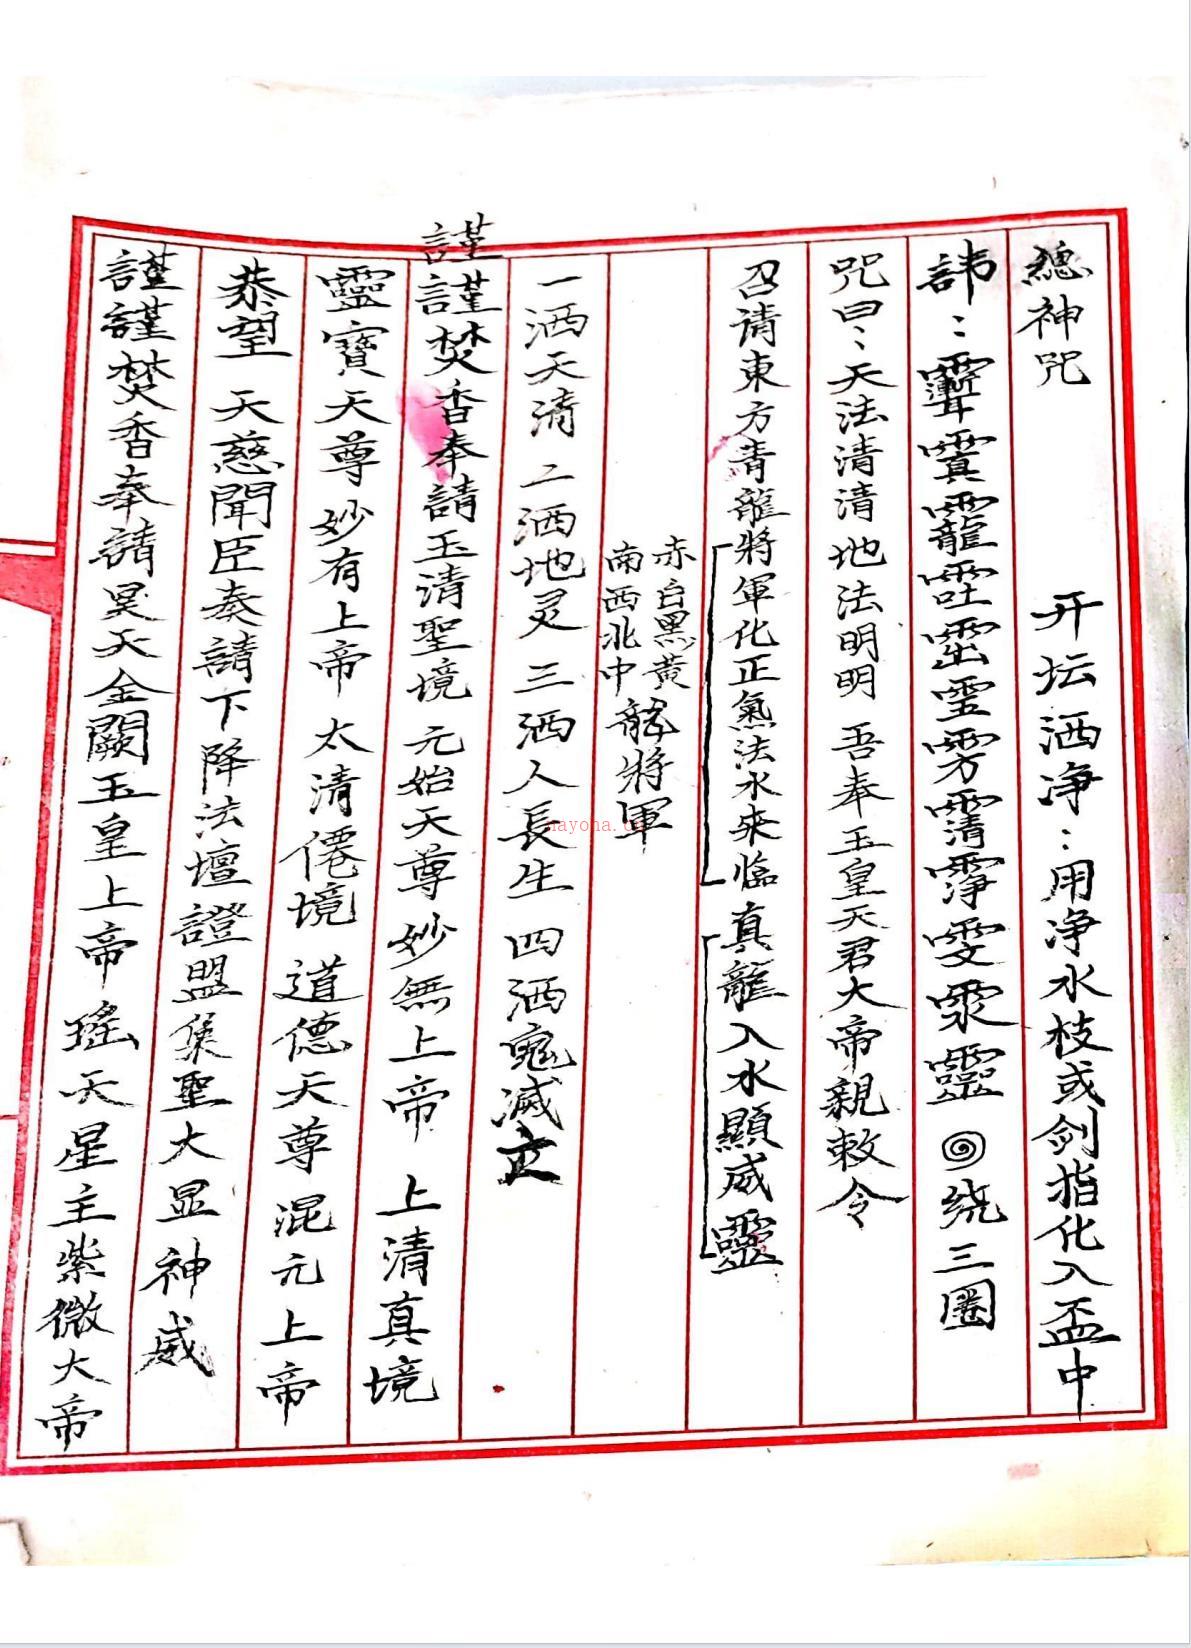 總神咒 开坛洒净：用净水枝或剑指化入盃中
諱： 靈 绕三圈
咒曰：天法清清地法明明 吾奉玉皇天君大帝親敕令
召请東方青龍將軍化正氣法水來临真龍入水顯威靈
赤白黑黄
南西北中龍將軍
一洒天清 二洒地灵 三洒人長生 四洒鬼滅亡
謹謹焚香奉請玉清聖境元始天尊妙無上帝 上清真境
靈寶天尊妙有上帝 太清仙境 道德天尊混元上帝
恭望 天慈聞臣奏請下降法壇證盟集聖大显神威
謹謹焚香奉請昊天金闕玉皇上帝 瑤天星主紫微大帝
nayona.cn